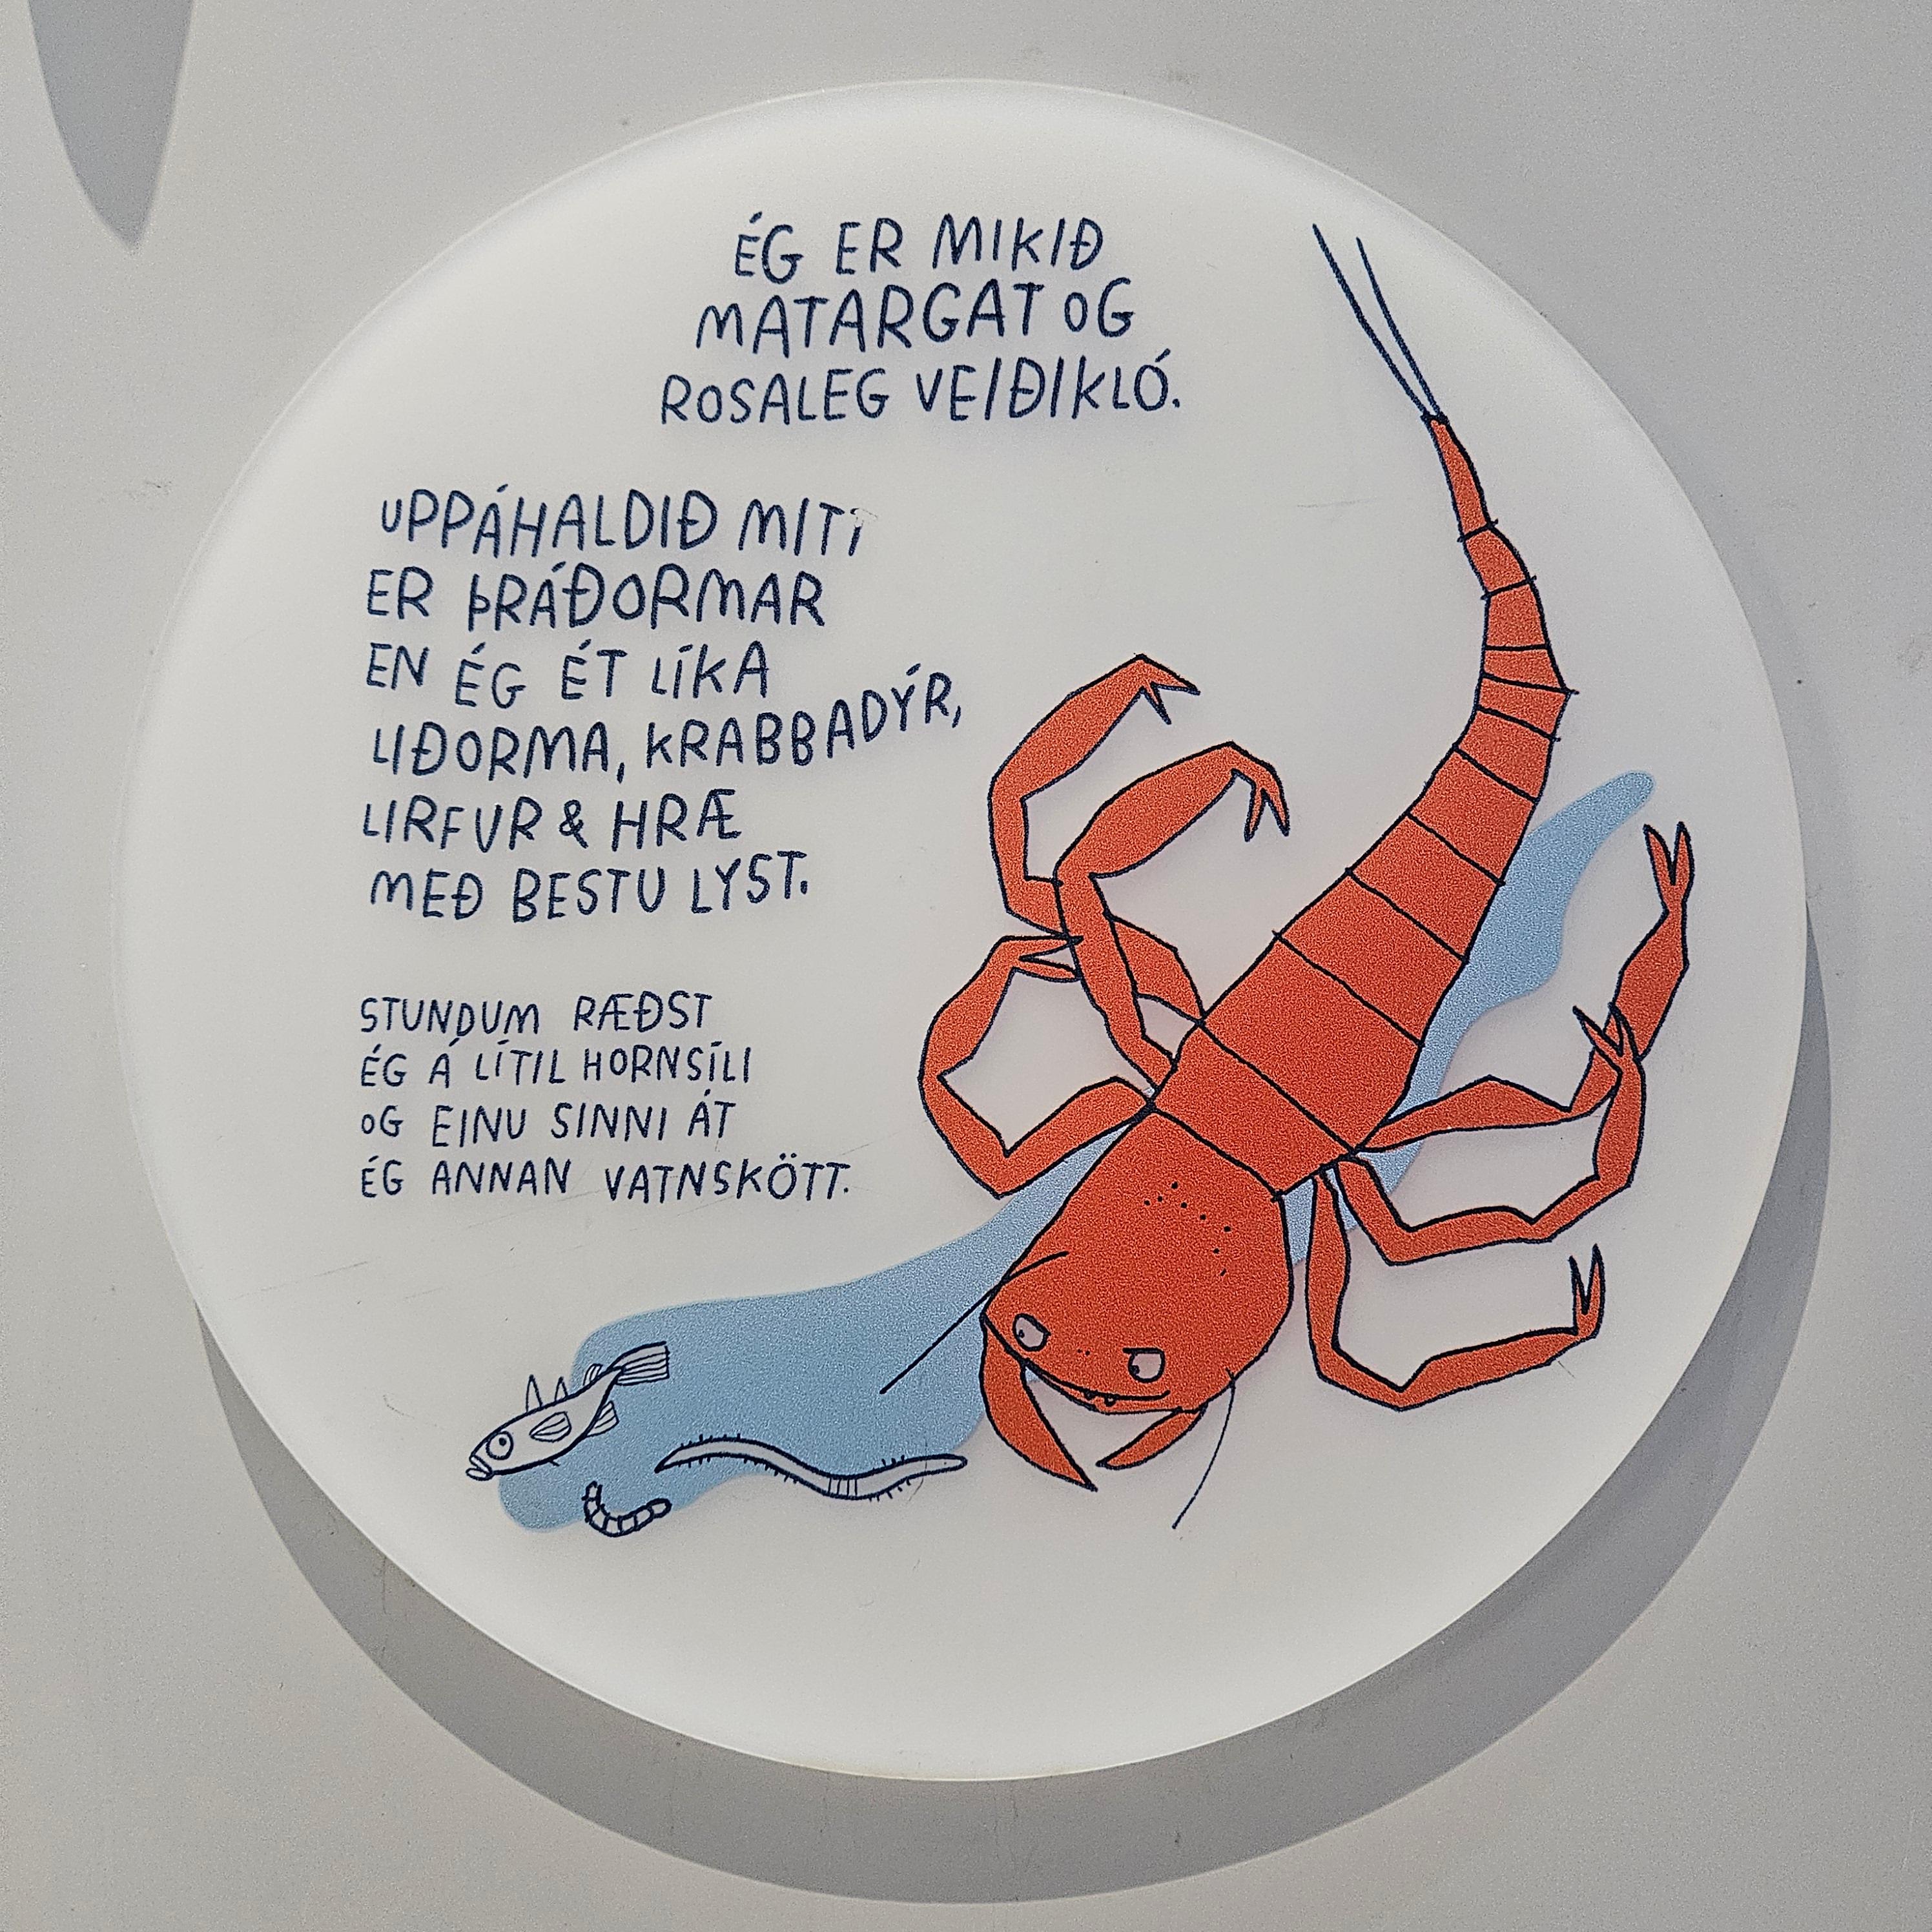 ÉG ER MIKIÐ
MATARGAT OG
ROSALEG VEIÐIKLÓ.
UPPÁHALDIÐ MITT
ER ÞRÁÐORMAR
EN ÉG ÉT LÍKA
LIÐORMA, KRABBADÝR,
LIRFUR & HRÆ
MEÐ BESTU LYST.
STUNDUM RÆÐST
ÉG Á LÍTIL HORNSÍLI
OG EINU SINNI ÁT
ÉG ANNAN VATNSKÖTT.